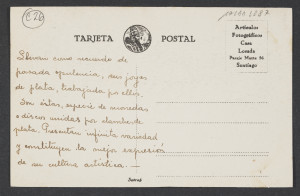 E20
TARJETA POSTAL
Artículos
Fotográficos
Casa
Losada
Pasaje Matte 56
Santiago
Llevan como recuerdo de
pasada opulencia, sus joyas
de plata, trabajada por ellos.
Son éstas, especie de monedas
o discos unidas por alambre de
plata. Presentan infinita variedad
y constituyen la mejor expresión
de su cultura artística. —